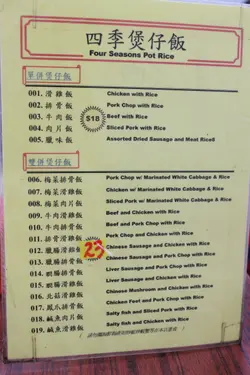 四季煲仔飯
Four Seasons Pot Rice
單併煲仔飯
001. 滑雞飯 Chicken with Rice
002. 排骨飯 Pork Chop with Rice
003. 牛肉飯 Beef with Rice
$18
004. 肉片飯 Sliced Pork with Rice
005. 臘味飯 Assorted Dried Sausage and Meat Rice
雙併煲仔飯
006. 梅菜排骨飯 Pork Chop w/ Marinated White Cabbage & Rice
007. 梅菜滑雞飯 Chicken w/ Marinated White Cabbage & Rice
008. 梅菜肉片飯 Sliced Pork w/ Marinated White Cabbage & Rice
009. 牛肉滑雞飯 Beef and Chicken with Rice
010. 牛肉排骨飯 Beef and Pork Chop with Rice
011. 排骨滑雞飯 Pork Chop and Chicken with Rice
012. 臘腸滑雞飯 Chinese Sausage and Chicken with Rice
23
013. 臘腸排骨飯 Chinese Sausage and Pork Chop with Rice
014. 排骨飯 Liver Sausage and Pork Chop with Rice
015. 滑雞飯 Liver Sausage and Chicken with Rice
016. 北菇滑雞飯 Chinese Mushroom and Chicken with Rice
017. 鳳爪排骨飯 Chicken Feet and Pork Chop with Rice
018. 鹹魚肉片飯 Salty fish and Sliced Pork with Rice
019. 鹹魚滑雞飯 Salty fish and Chicken with Rice